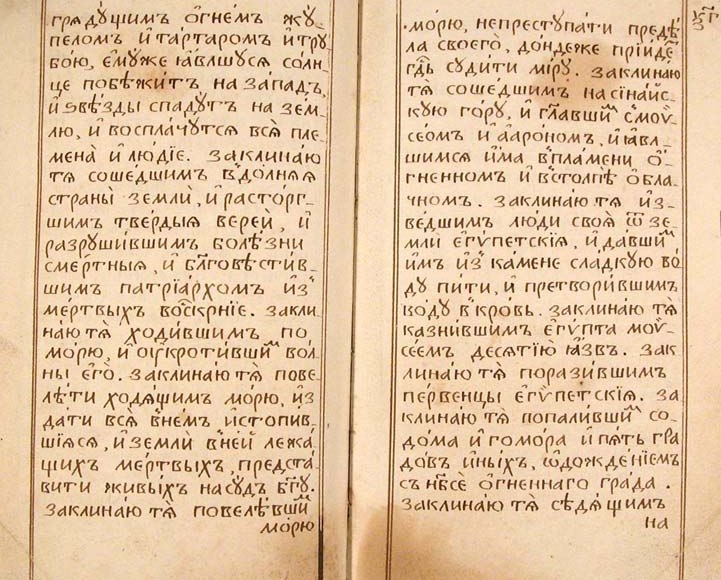 грядꙋ́щимъ ѻ҆гне́мъ жꙋ́
пеломъ и҆ та́ртаромъ и҆ трꙋ
бо́ю, є҆мꙋ́же ꙗ҆́вльшꙋся со́лн
це побѣжи́тъ на за́падъ,
и҆ ѕвѣ́зды спадꙋ́тъ на зем
лю̀, и҆ воспла́чꙋтся всѧ̀ пле
мена̀ и҆ лю́дїе. заклина́ю
тѧ̀ соше́дшимъ в до́лняѧ
страны̀ землѝ, и҆ расто́рг
шимъ тве́рдыѧ вереѝ, и҆
разрꙋши́вшимъ болѣ́зни
сме́ртныѧ, и҆ бл҃говѣсти́в
шимъ патрїа́рхомъ и҆з̾
ме́ртвыхъ воскр҇нїе. закли
на́ю тѧ̀ ходи́вшимъ по
мо́рю, и҆ ᲂу҆кроти́вшиⷨ во́л
ны є҆гѡ̀. заклина́ю тѧ̀ пове
лѣ́ти ходѧ́щимъ мо́рю, и҆з
да́ти всѧ̀ в не́мъ и҆стопи́в
шїясѧ, и҆ землѝ в не́й лежа́
щихъ ме́ртвыхъ, предста́
вити живы́хъ на сꙋ́дъ бг҃ꙋ.
заклина́ю тѧ̀ повелѣ́вшиⷨ
мо́рю
мо́рю, не престꙋпа́ти предѣ́
ла своегѡ̀, до́ндеже прїи́деⷮ
гд҇ь сꙋди́ти мі́рꙋ. заклина́ю
тѧ̀ соше́дшимъ на сїна́йс
кꙋю го́рꙋ, и҆ гл҃авшиⷨ с моѷ
се́омъ и҆ а҆аро́номъ, и҆ ꙗ҆́вл
шимсѧ и҆́ма в пла́мени ѻ҆́
гненномъ и҆ в столпѣ̀ ѻ҆́бла
чномъ. заклина́ю тѧ̀ и҆з
ве́дшимъ лю́ди своѧ̀ ѿ зе
млѝ є҆гѵ́петскїѧ, и҆ да́вшиⷨ
и҆̀мъ и҆з̾ ка́мене сла́дкꙋю во́
дꙋ пи́ти, и҆ претвори́вшимъ
во́дꙋ в кро́вь. заклина́ю тѧ̀
казни́вшимъ є҆гѵ́пта моѷ
се́емъ десѧтїю ꙗ҆́звъ. зак
лина́ю тѧ̀ порази́вшимъ
пе́рвенцы є҆гѵ́петскїѧ. за
клина́ю тѧ̀ попали́вшиⷨ со
до́ма и҆ гомо́ра и҆ пѧ́ть гра
до́въ и҆ны́хъ, ѡ҆дожде́нїемъ
съ нб҃сѐ ѻ҆́гненнаго гра́да.
заклина́ю тѧ̀ сѣдѧ́щимъ
на